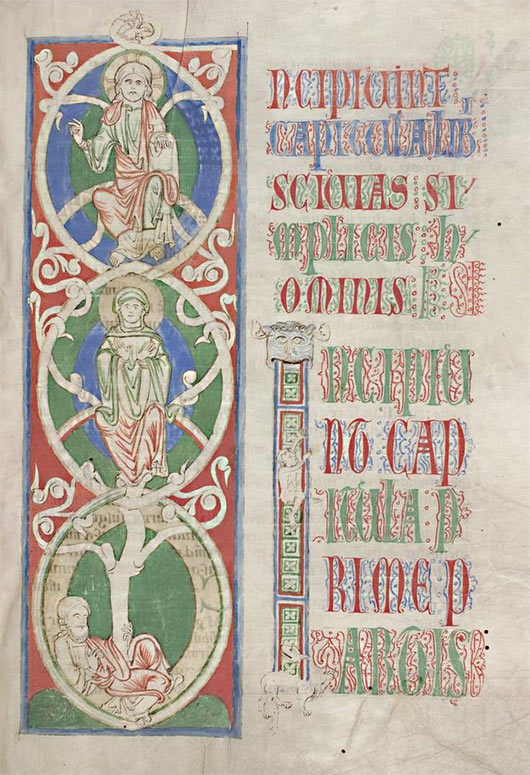 INCIPIUNT
CAPITULA LIB
SCIUIAS SI
MPLICIS h
OMINIS
INCIPIU
NT CAP
ITULA P
RIME P
ARTIS